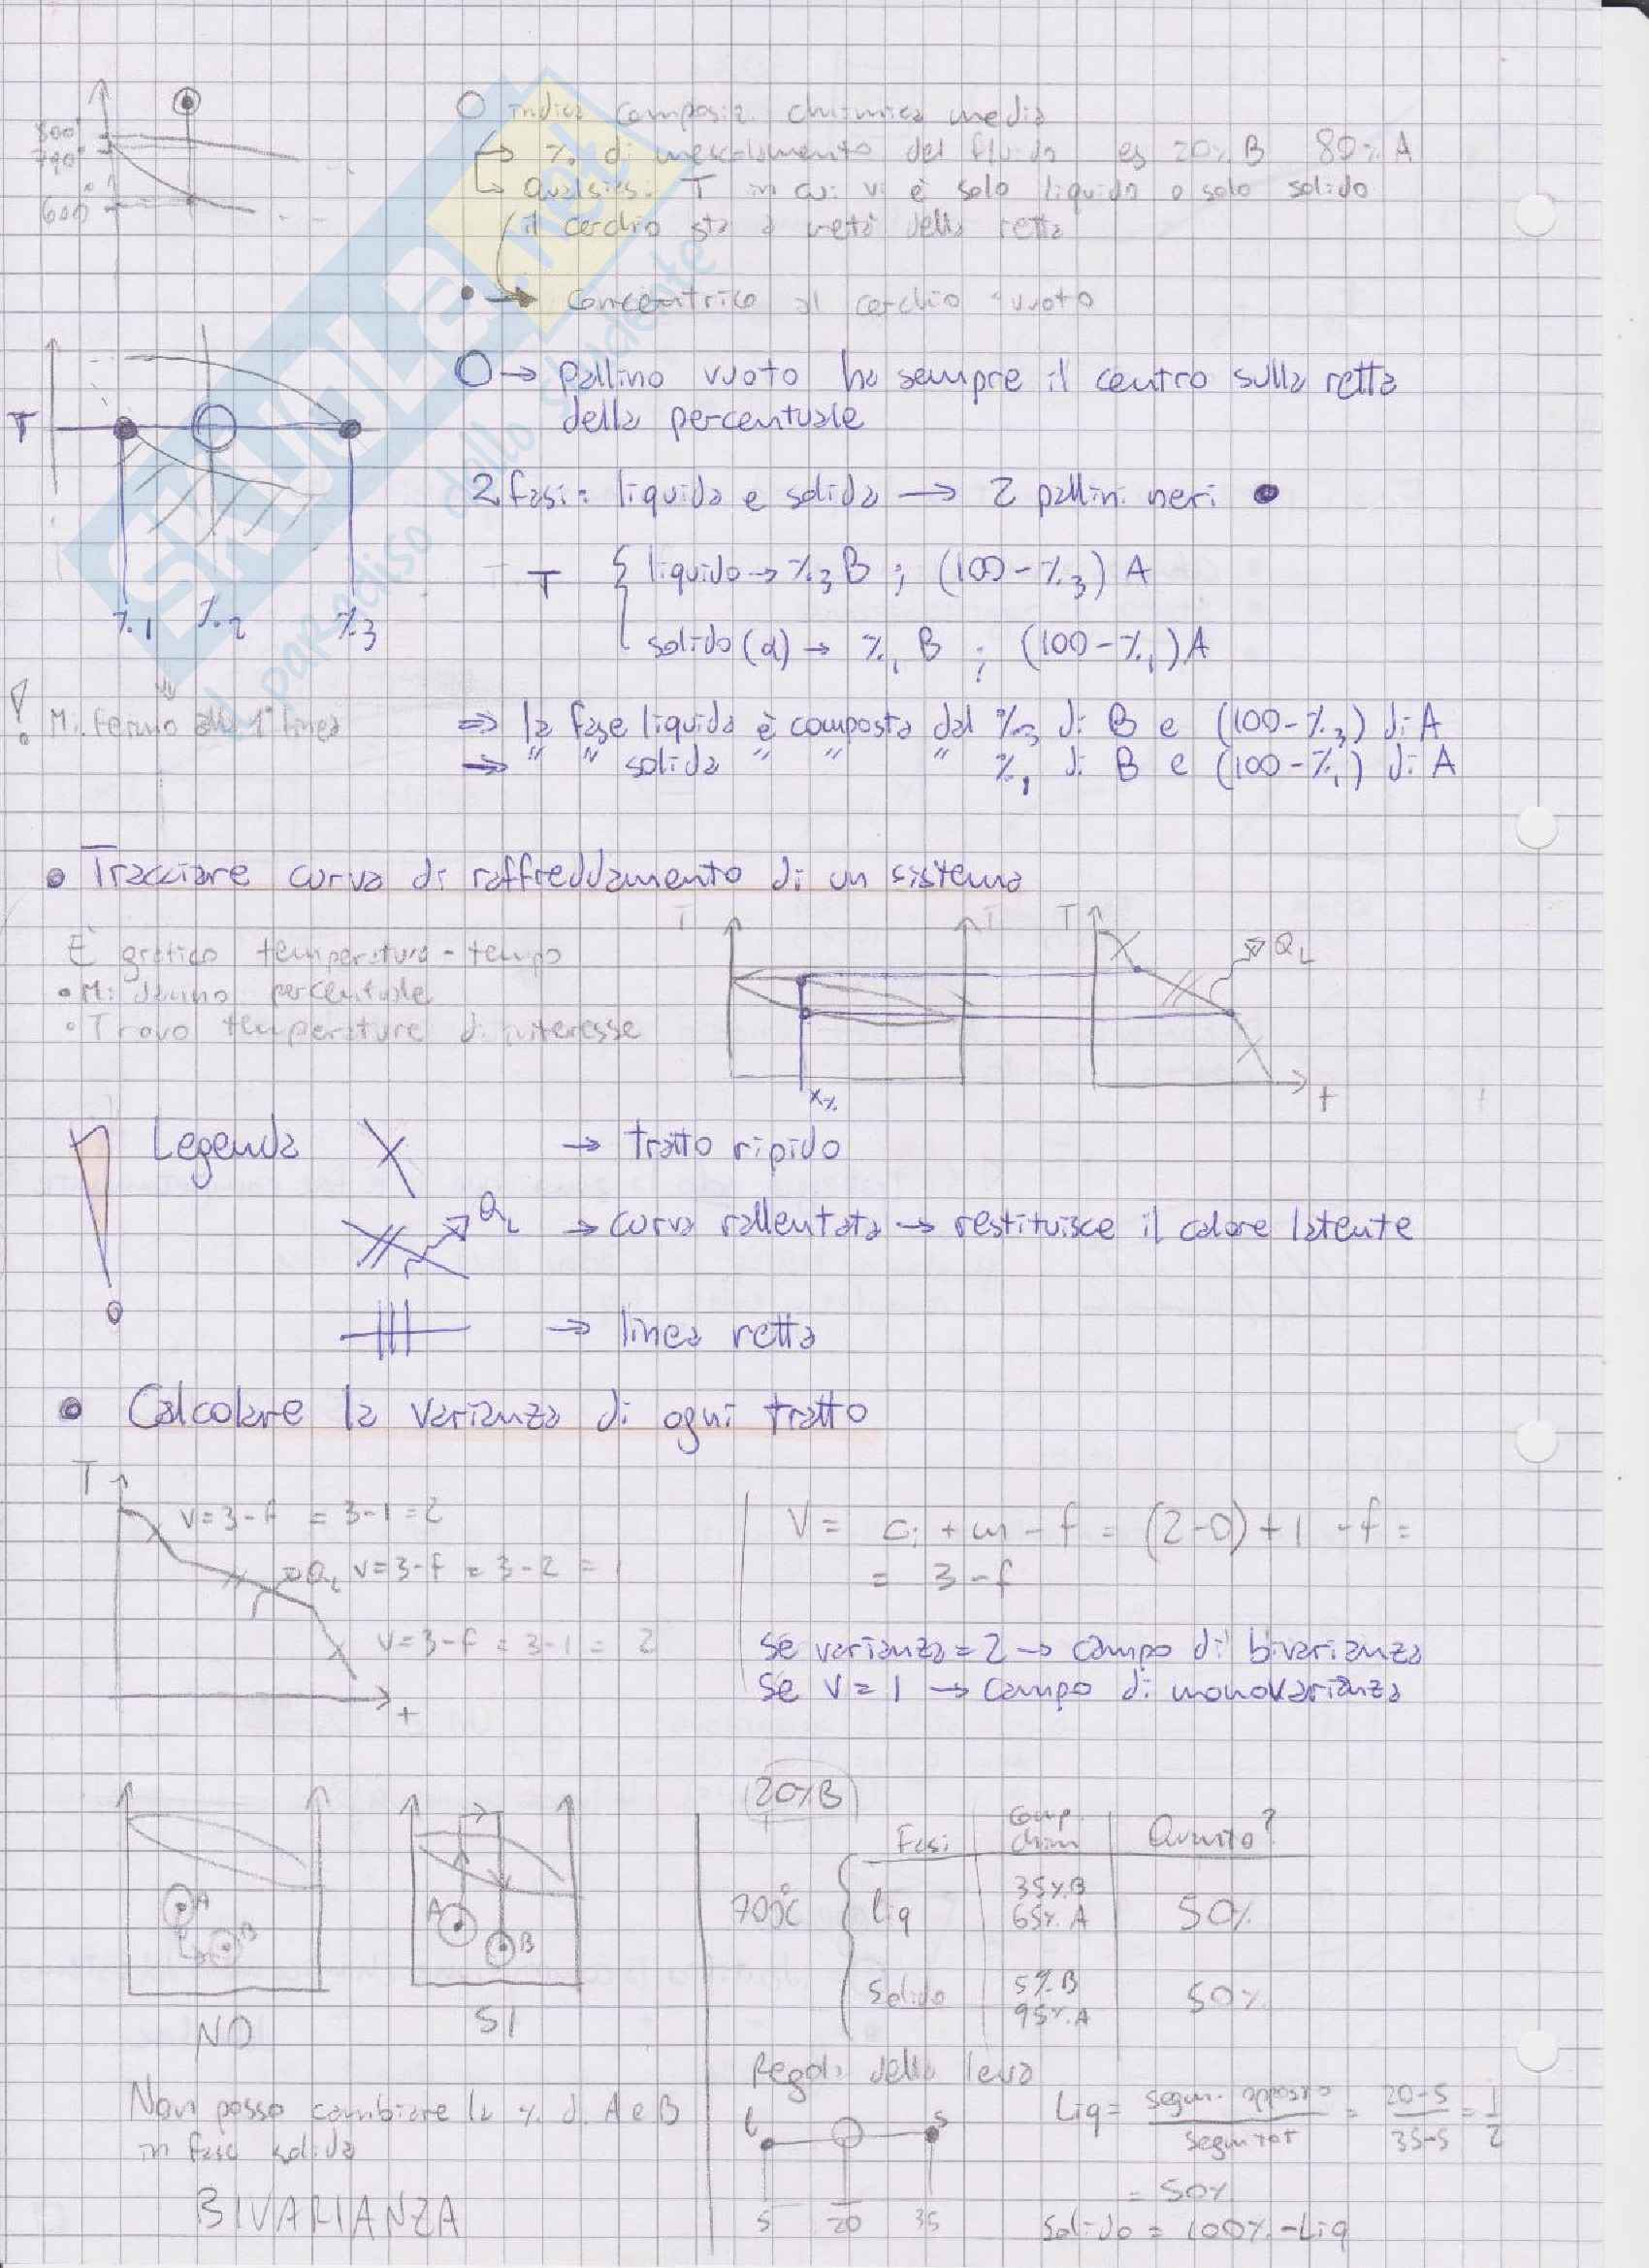 800°
790°
600°
O indica composiz. chimica media
→ % di mescolamento del fluido es 20% B 80% A
↳ Qualsiasi T in cui vi è solo liquido o solo solido
il cerchio sta a metà della retta
• → concentrico al cerchio vuoto
SKUOLA.net
il paradiso dello studente
O → pallino vuoto ha sempre il centro sulla retta
della percentuale
T
2 fasi: liquida e solida → 2 pallini neri •
T { liquido → %3 B ; (100-%3) A
solido (α) → %1 B ; (100-%1) A
%1 %2 %3
! Mi fermo alla 1° linea
⇒ la fase liquida è composta dal %3 di B e (100-%3) di A
⇒ " " solida " " " %1 di B e (100-%1) di A
• Tracciare curva di raffreddamento di un sistema
È grafico temperatura - tempo
• Mi danno percentuale
• Trovo temperature di interesse
T T
X%
T QL
t
! Legenda
→ tratto ripido
QL → curva rallentata → restituisce il calore latente
→ linea retta
• Calcolare la varianza di ogni tratto
T
V=3-f = 3-1=2
QL V=3-f = 3-2 = 1
V=3-f = 3-1 = 2
t
V = ci + m - f = (2-0)+1 -f =
= 3-f
Se varianza = 2 → campo di bivarianza
Se V = 1 → campo di monovarianza
A
B
NO
A
B
SI
Non posso cambiare la % di A e B
in fase solida
BIVARIANZA
20%B
Fasi Comp. chim Quanto?
700°C { Liq 35%B 65%A 50%
Solido 5%B 95%A 50%
Regola della leva
l s
5 20 35
Liq = segm. opposto / segm tot = 20-5 / 35-5 = 1/2
= 50%
Solido = 100%-Liq